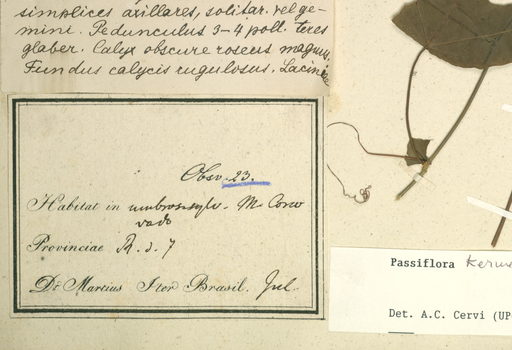 simplices axillares, solitar. vel ge-
mini. Pedunculus 3-4 poll. teres
glaber. Calyx obscure roseus magnus.
Fundus calycis rugulosus. Lacin
Obsv. 23.
Habitat in umbros. sylv. M. Corco
vado
Provinciae R. d. J
Dr. Martius Iter Brasil. Jul.
Passiflora
Det. A.C. Cervi (UP